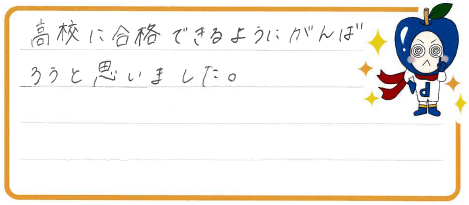 高校に合格できるようにがんば
ろうと思いました。
d